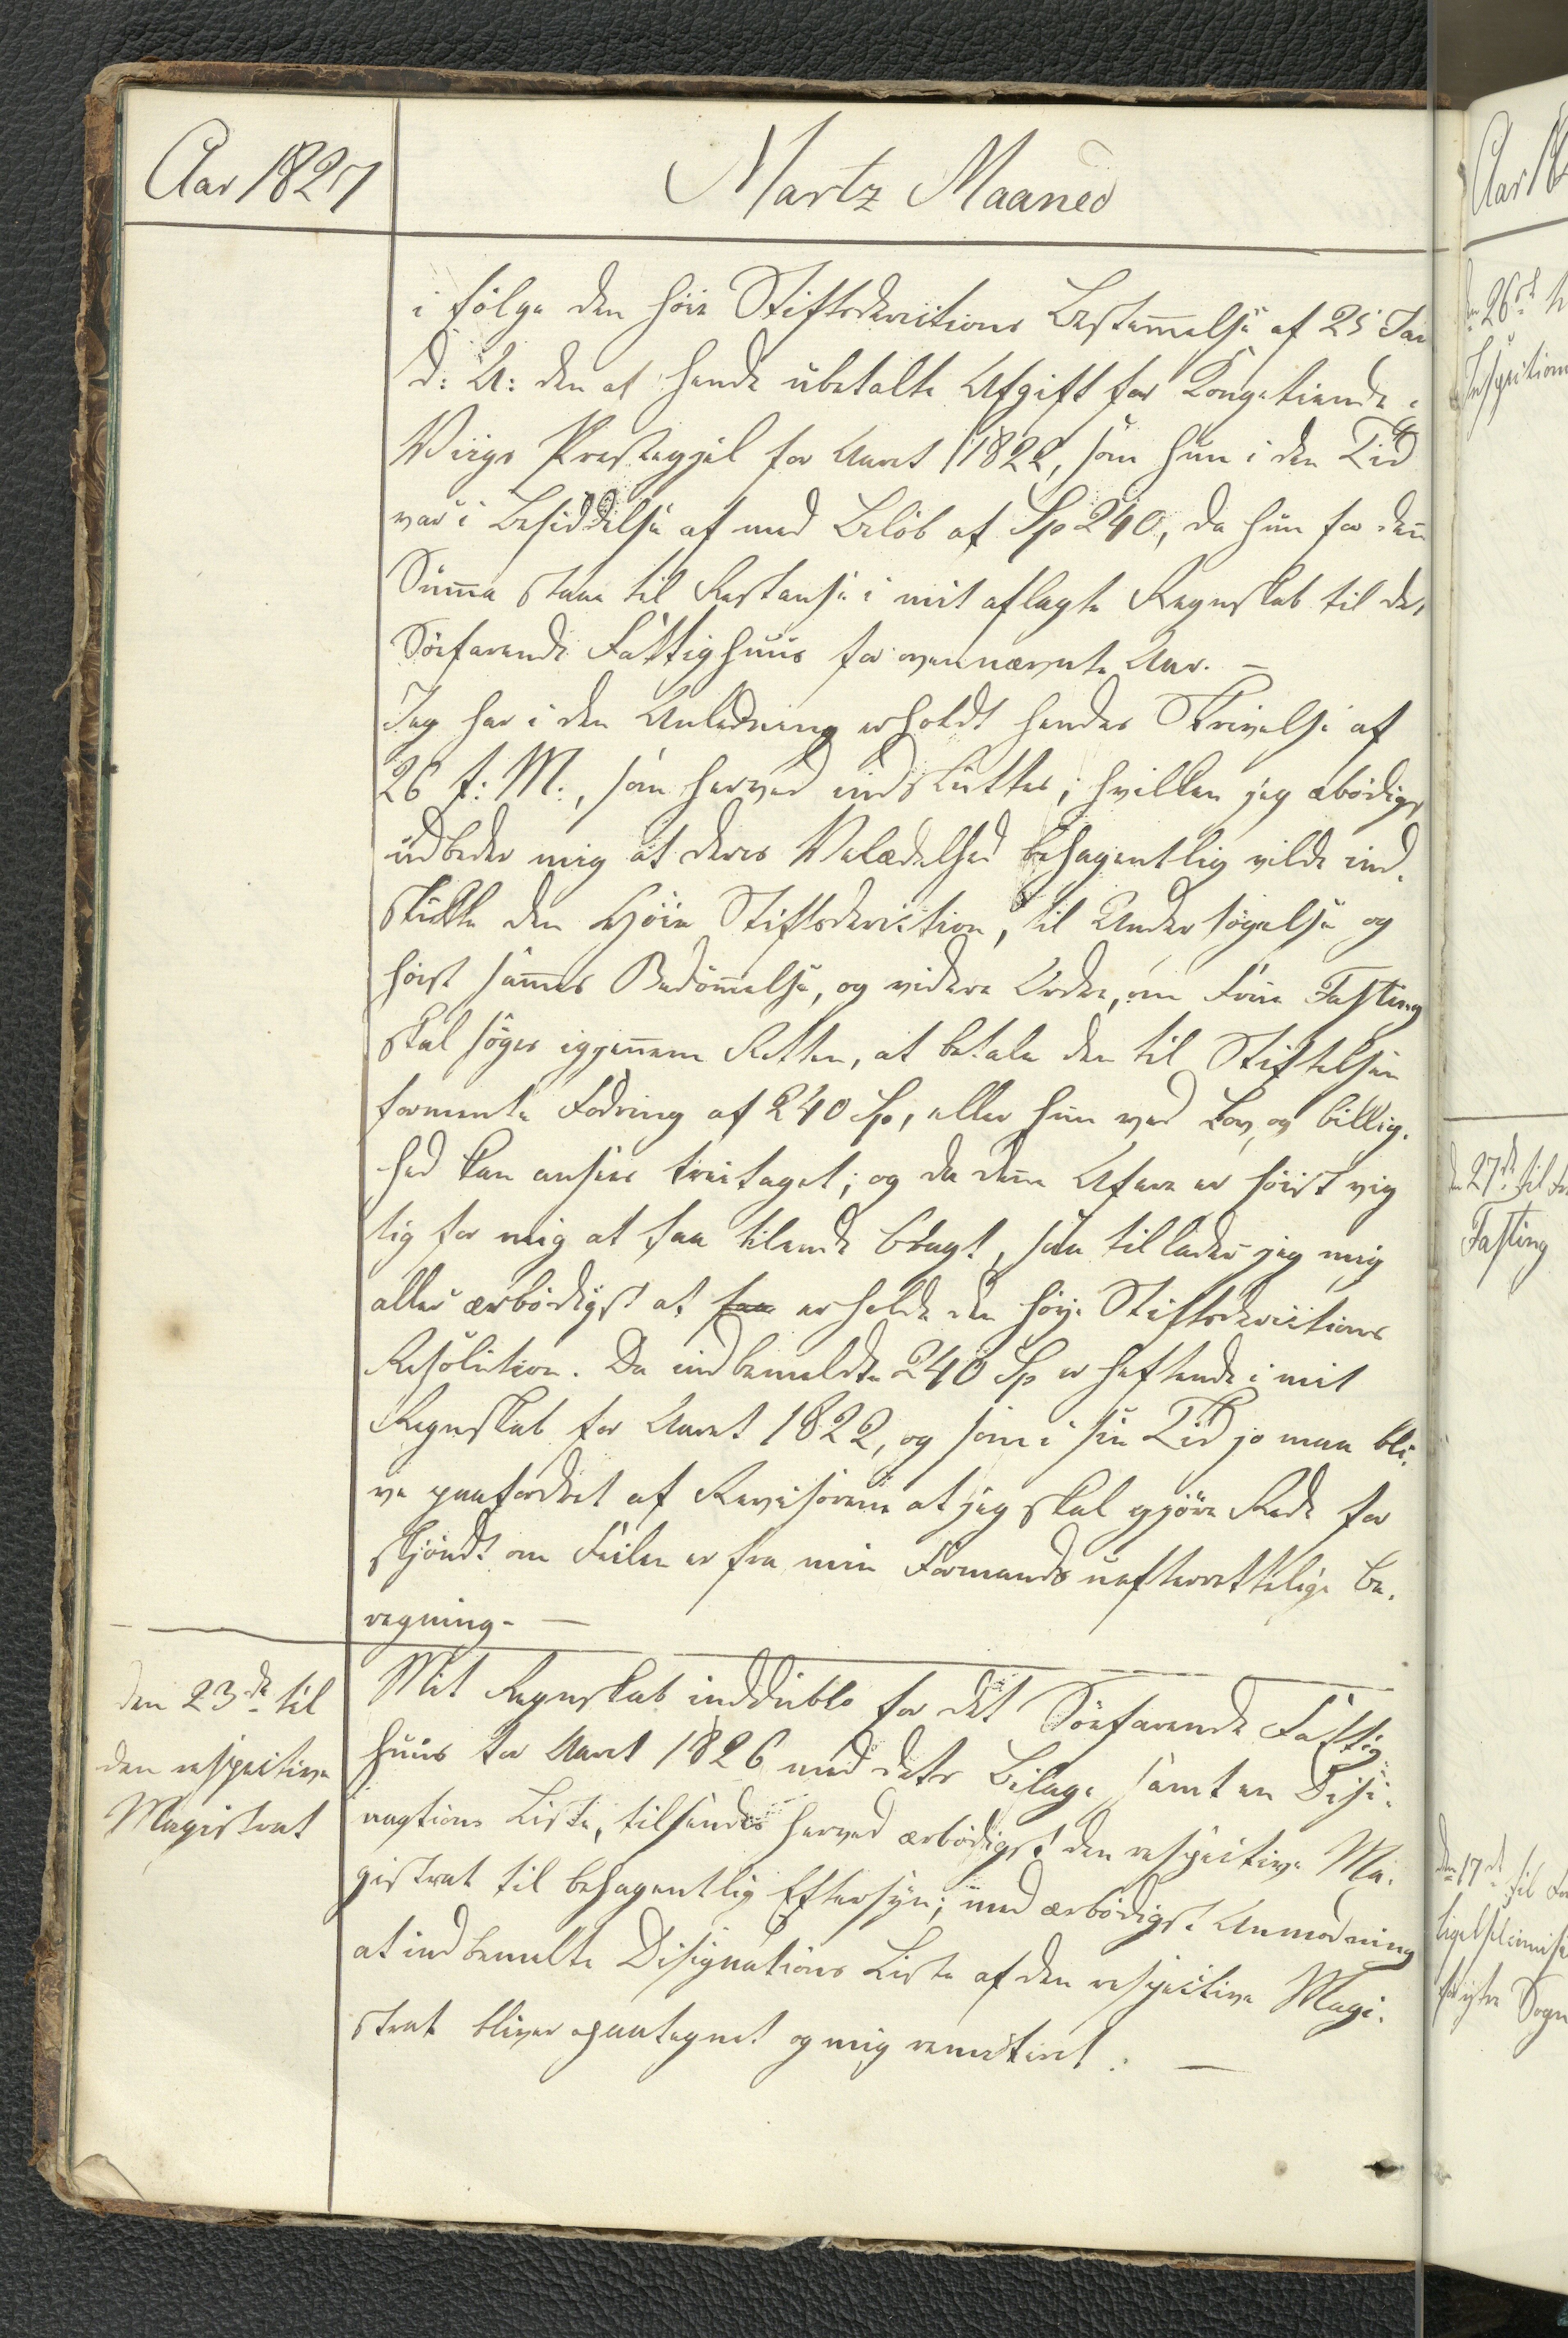 Aar 1827
Martz Maaned
i følge den høie Stiftsdirections Bestem̅else af 25 Jan
d: A: den af hende ubetalte Afgift for Kongetiende i
Viigs Præstegjel for Aaret 1822, som hun i den Tid
var i Besiddelse af med Beløb af Sp 240, da hun for den̅
Sum̅a staar til Restanse i mit aflagte Regnskab til det
Søefarende Fattighuus for ovennævnte Aar. –
Jeg har i den Anledning erholdt hendes Skrivelse af
26 f: M:, som herved indsluttes; hvilken jeg ærbødigst
udbeder mig at deres Velædelhed behagentlig vilde ind-
skikke den Høie Stiftsdirection, til Undersøgelse og
høist sam̅es Bedøm̅else, og videre Ordre, om Frue Fasting
skal søges igjennem Retten, at betale den til Stiftelsen
formente Fodring af 240 Sp, eller hun ved Lov og billig-
hed kan ansees fritaget; og da den̅e Afære er høist vig
tig for mig at faa tilende bragt, saa tillader jeg mig
aller ærbødigst at faa erholde den høye Stiftsdirections
Resolution. Da indbemeldte 240 Sp er heftende i mit
Regnskab for Aaret 1822, og som i sin Tid jo maa bli-
ve paafordret af Revisorene at jeg skal gjøre Rede for
skjøndt om Feilen er fra min Formands uefterrettelige be-
regning. –
den 23de til
den respective
Magistrat
Mit Regnskab in dublo for det Søefarende Fattig-
huus for Aaret 1826 med dets Bilage samt en Desi-
nagtions Liste, tilsendes herved ærbødigst den respective Ma-
gistrat til behagentlig Eftersyn; med ærbødigst Anmodning
at indbemelte Designations Liste af den respective Magi-
strat bliver paategnet og mig remiteret. –
Aar 18
den 26de
den 27de til
Fasting
den 17de til
Sogn